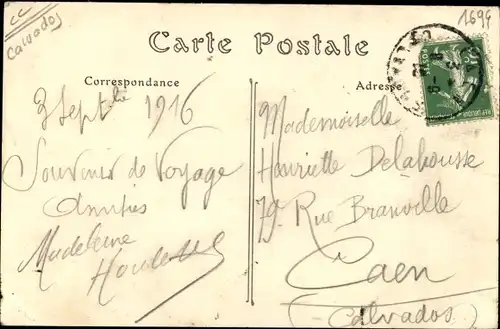 cc
Calvados
1699
Carte Postale
Correspondance
Adresse
3 Septbre 1916
Souvenir de Voyage
Amitiés
Madeleine
Mademoiselle
Henriette Delahousse
79 Rue Branville
Caen
(Calvados)